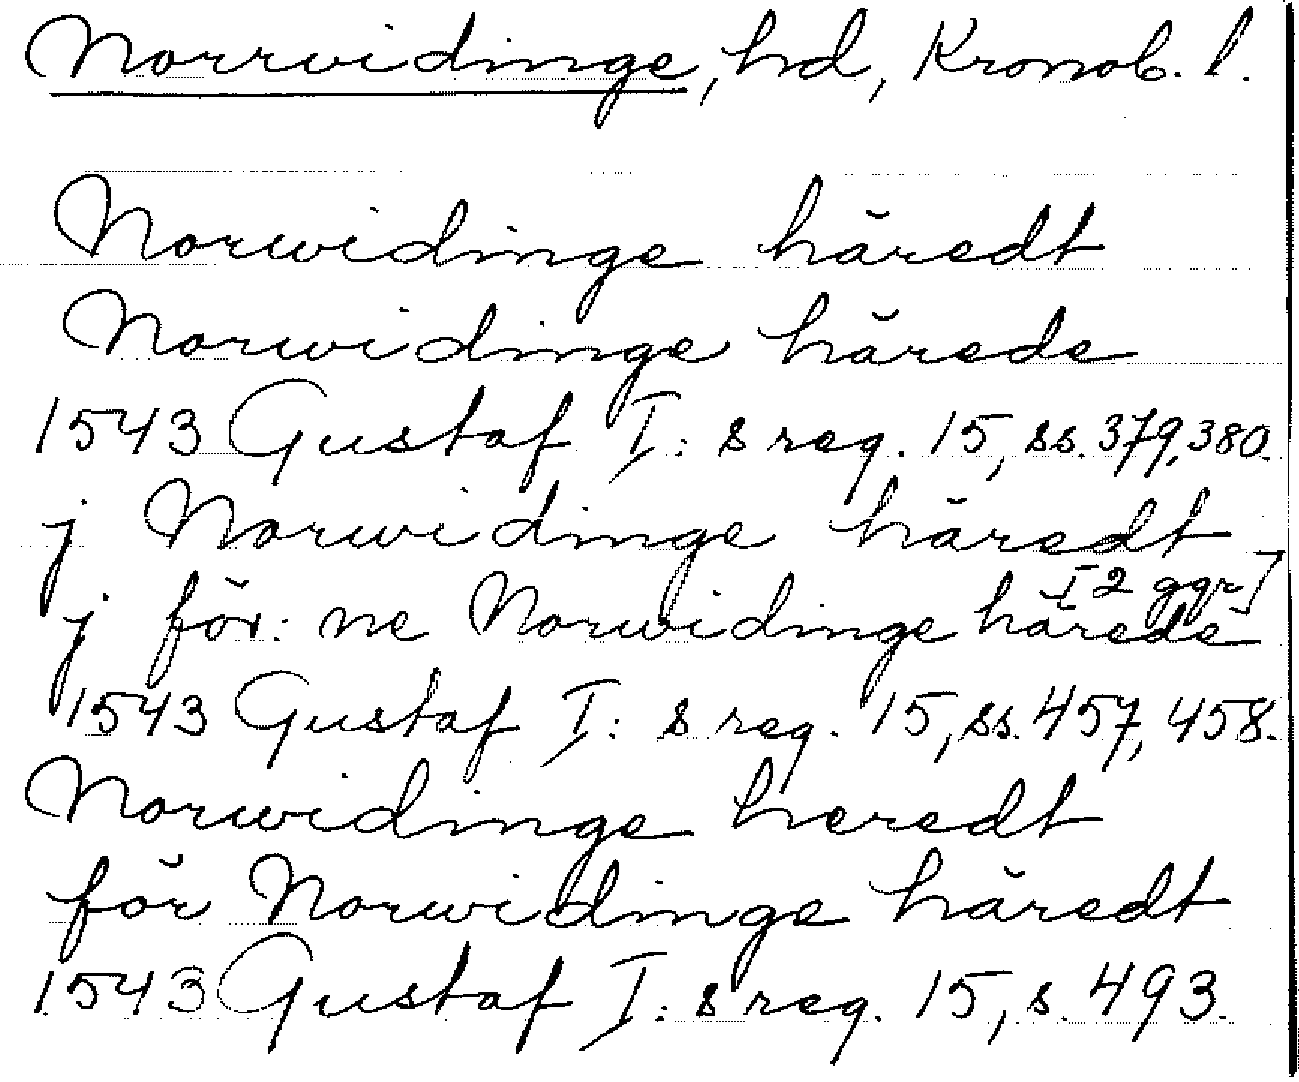 Norrvidinge, hd, Kronob. l.
Norwidinge häredt
Norwidinge härede
1543 Gustaf I: s reg. 15, ss. 379, 380.
j Norwidinge häredt
[2 ggr]
j för: ne Norwidinge härede
1543 Gustaf I: s reg. 15, ss. 457, 458.
Norwidinge heredt
för Norwidinge häredt
1543 Gustaf I: s reg. 15, s. 493.